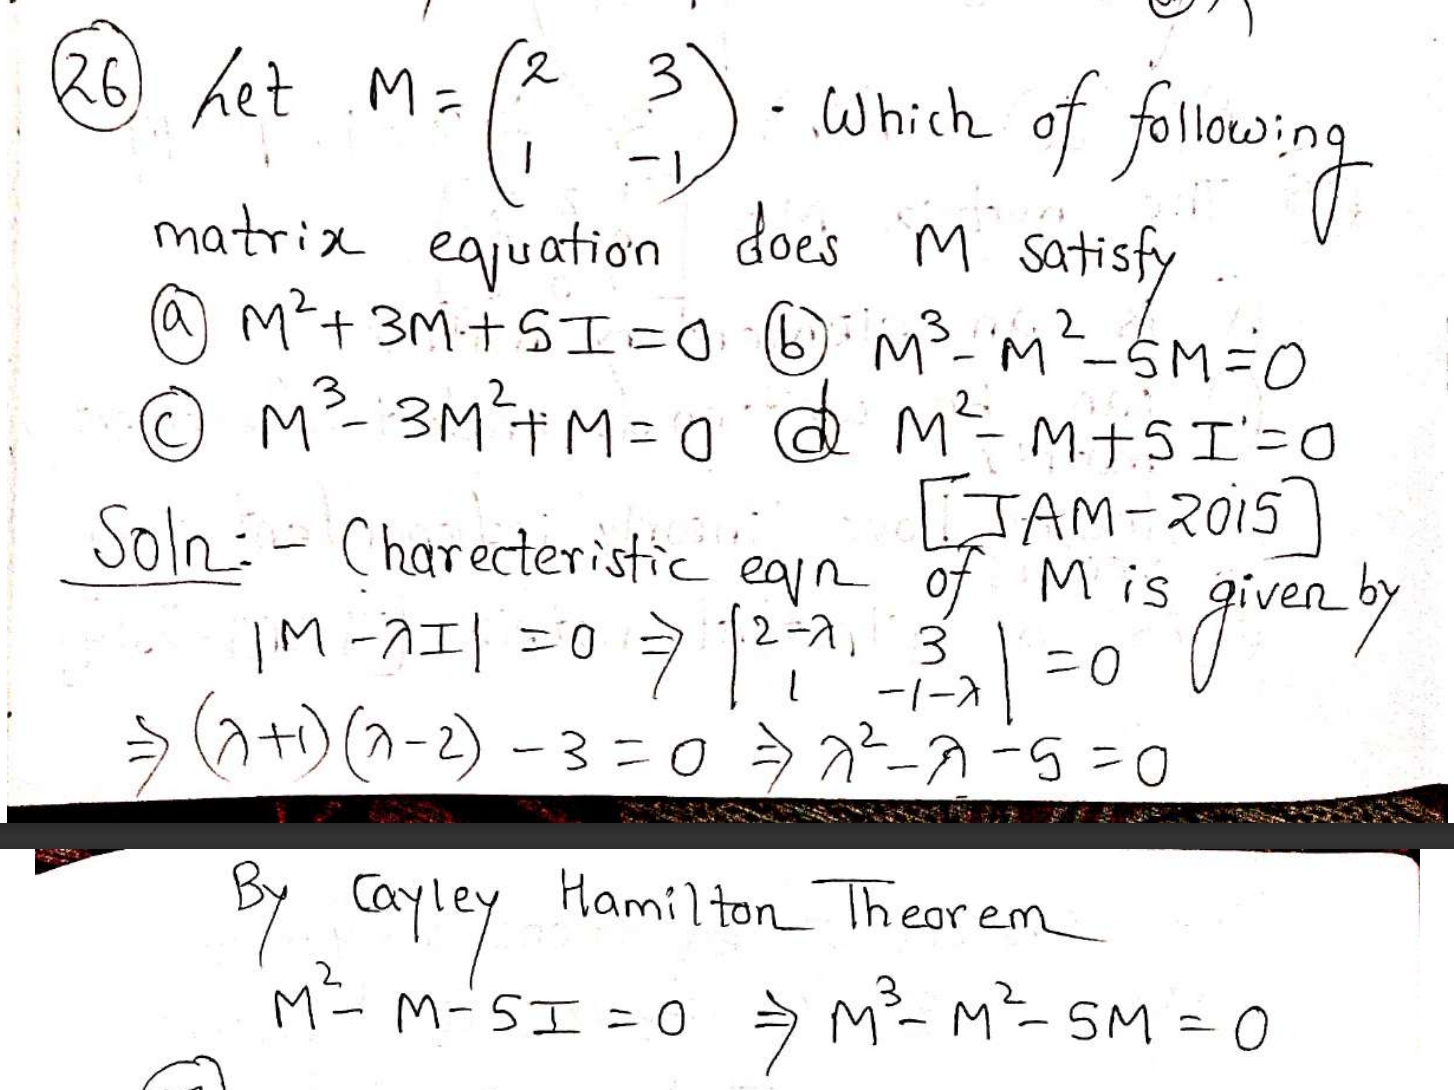 (26) Let M = ( 2 3 ) . Which of following
1 -1
matrix equation does M satisfy
(a) M² + 3M + 5I = 0 (b) M³ - M² - 5M = 0
(c) M³ - 3M² + M = 0 (d) M² - M + 5I = 0
[JAM-2015]
Soln:- Charecteristic eqn of M is given by
|M - λI| = 0 ⇒ | 2-λ, 3 | = 0
1 -1-λ
⇒ (λ+1)(λ-2) - 3 = 0 ⇒ λ² - λ - 5 = 0
By Cayley Hamilton Theorem
M² - M - 5I = 0 ⇒ M³ - M² - 5M = 0